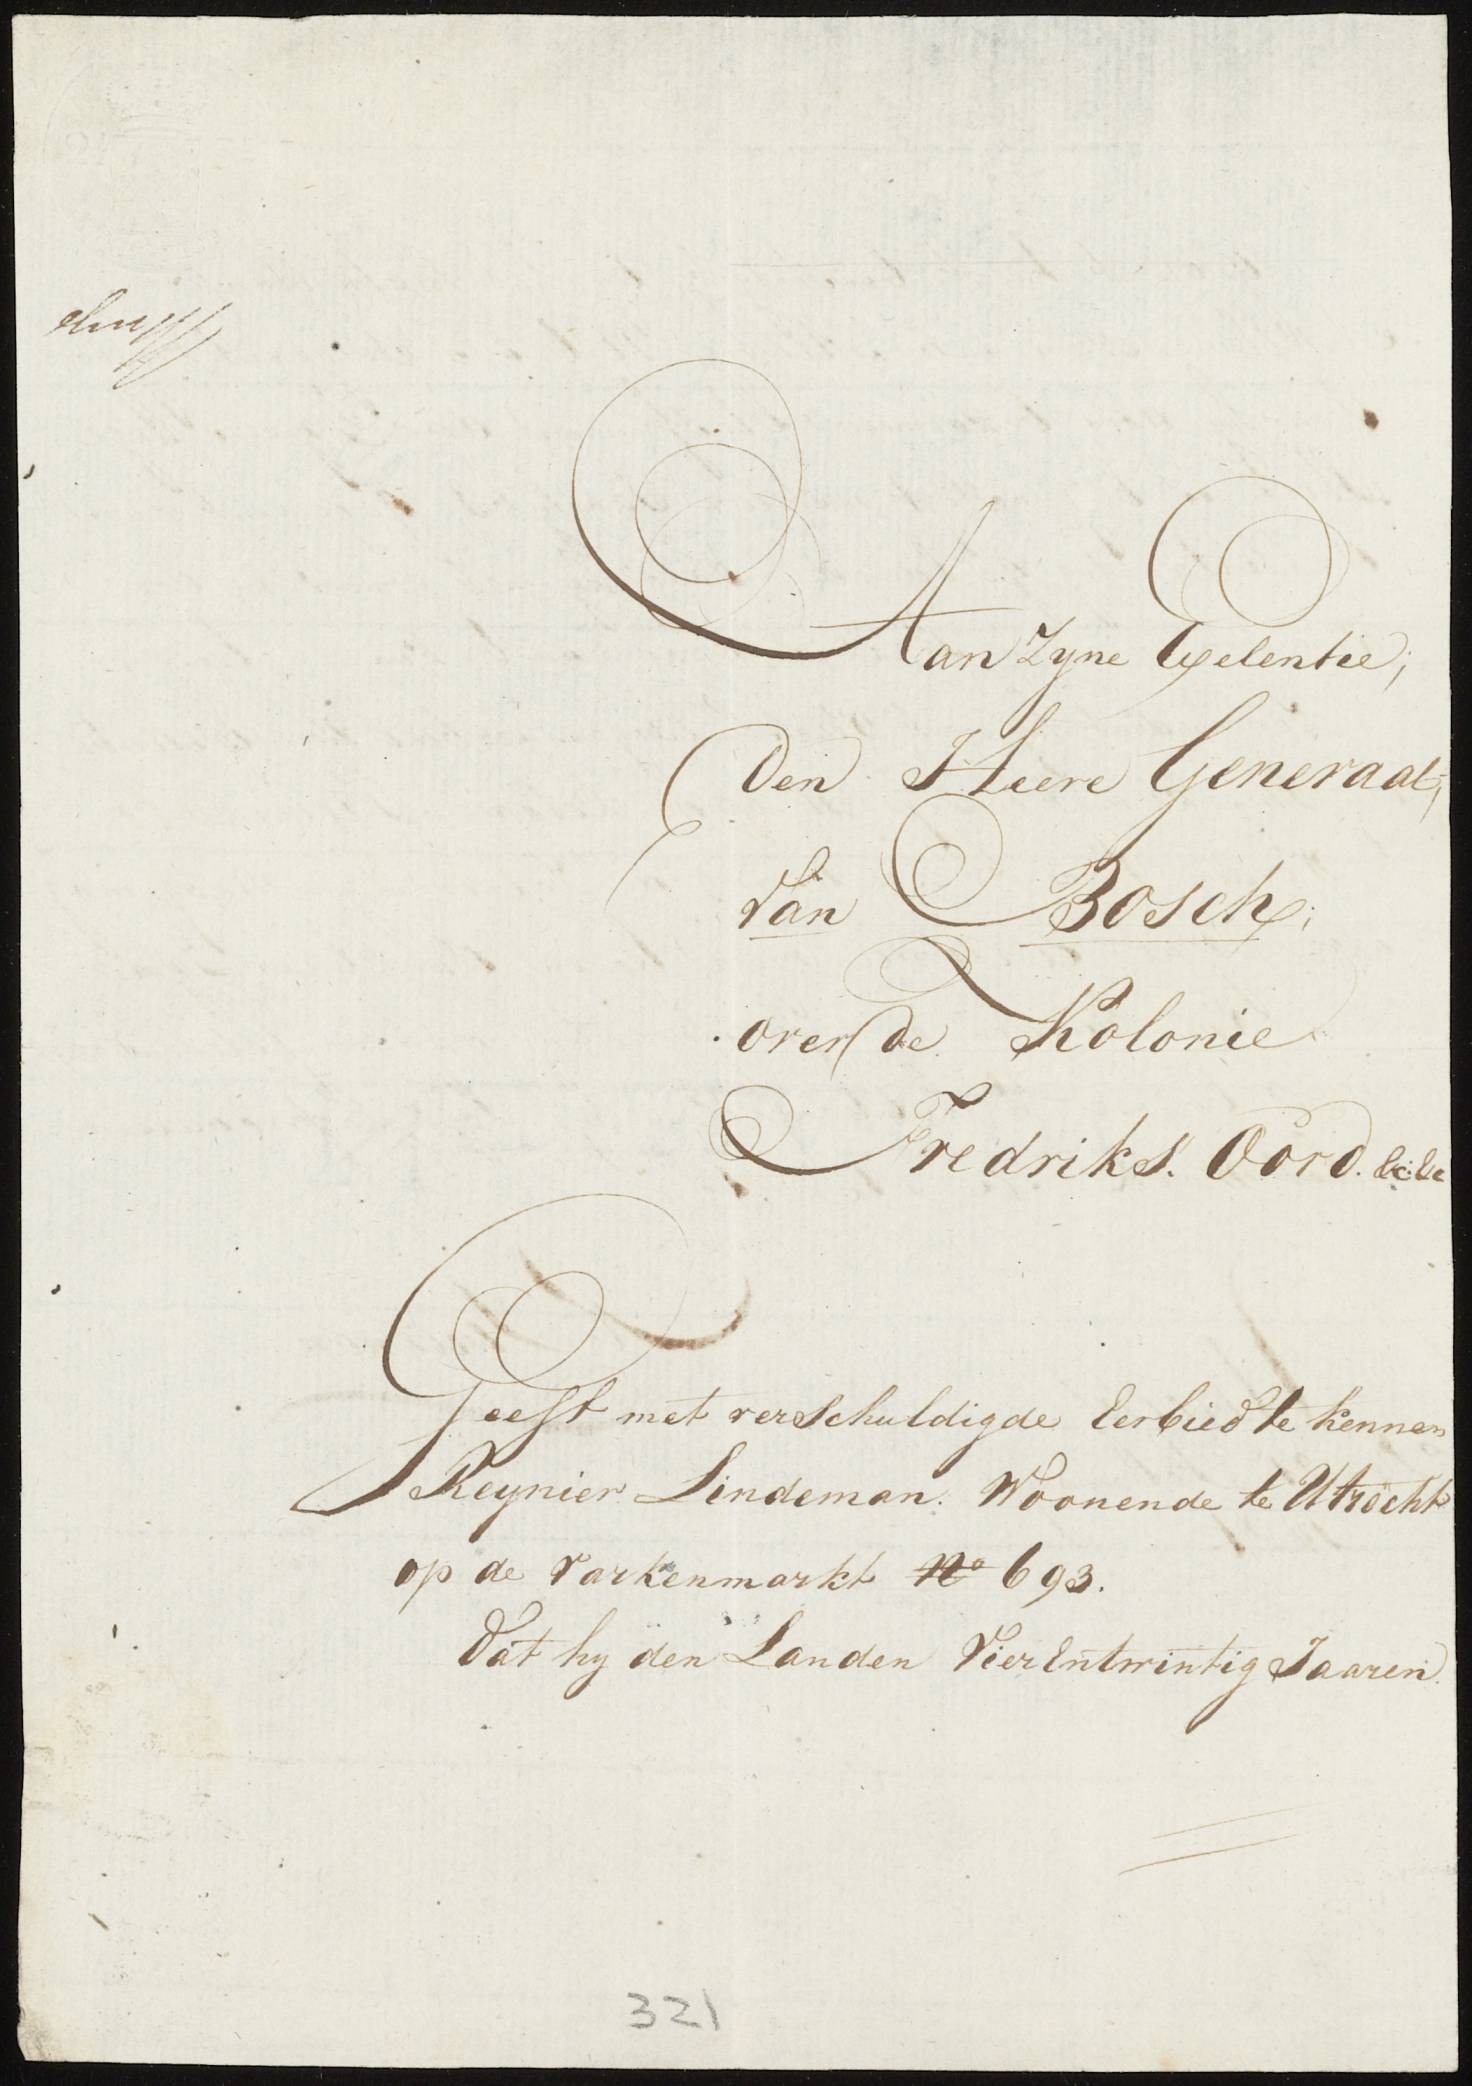 Aan Zyne Exelentie;
Den Heere Generaal;
Van Bosch;
over de Kolonie
Fredriks. Oord. &c: &c
Geeft met verschuldigde Eerbied te kennen
Reynier Lindeman. Woonende te Utrecht
op de Varkenmarkt No 693.
Dat hy den Landen VierEntwintig Jaaren
321